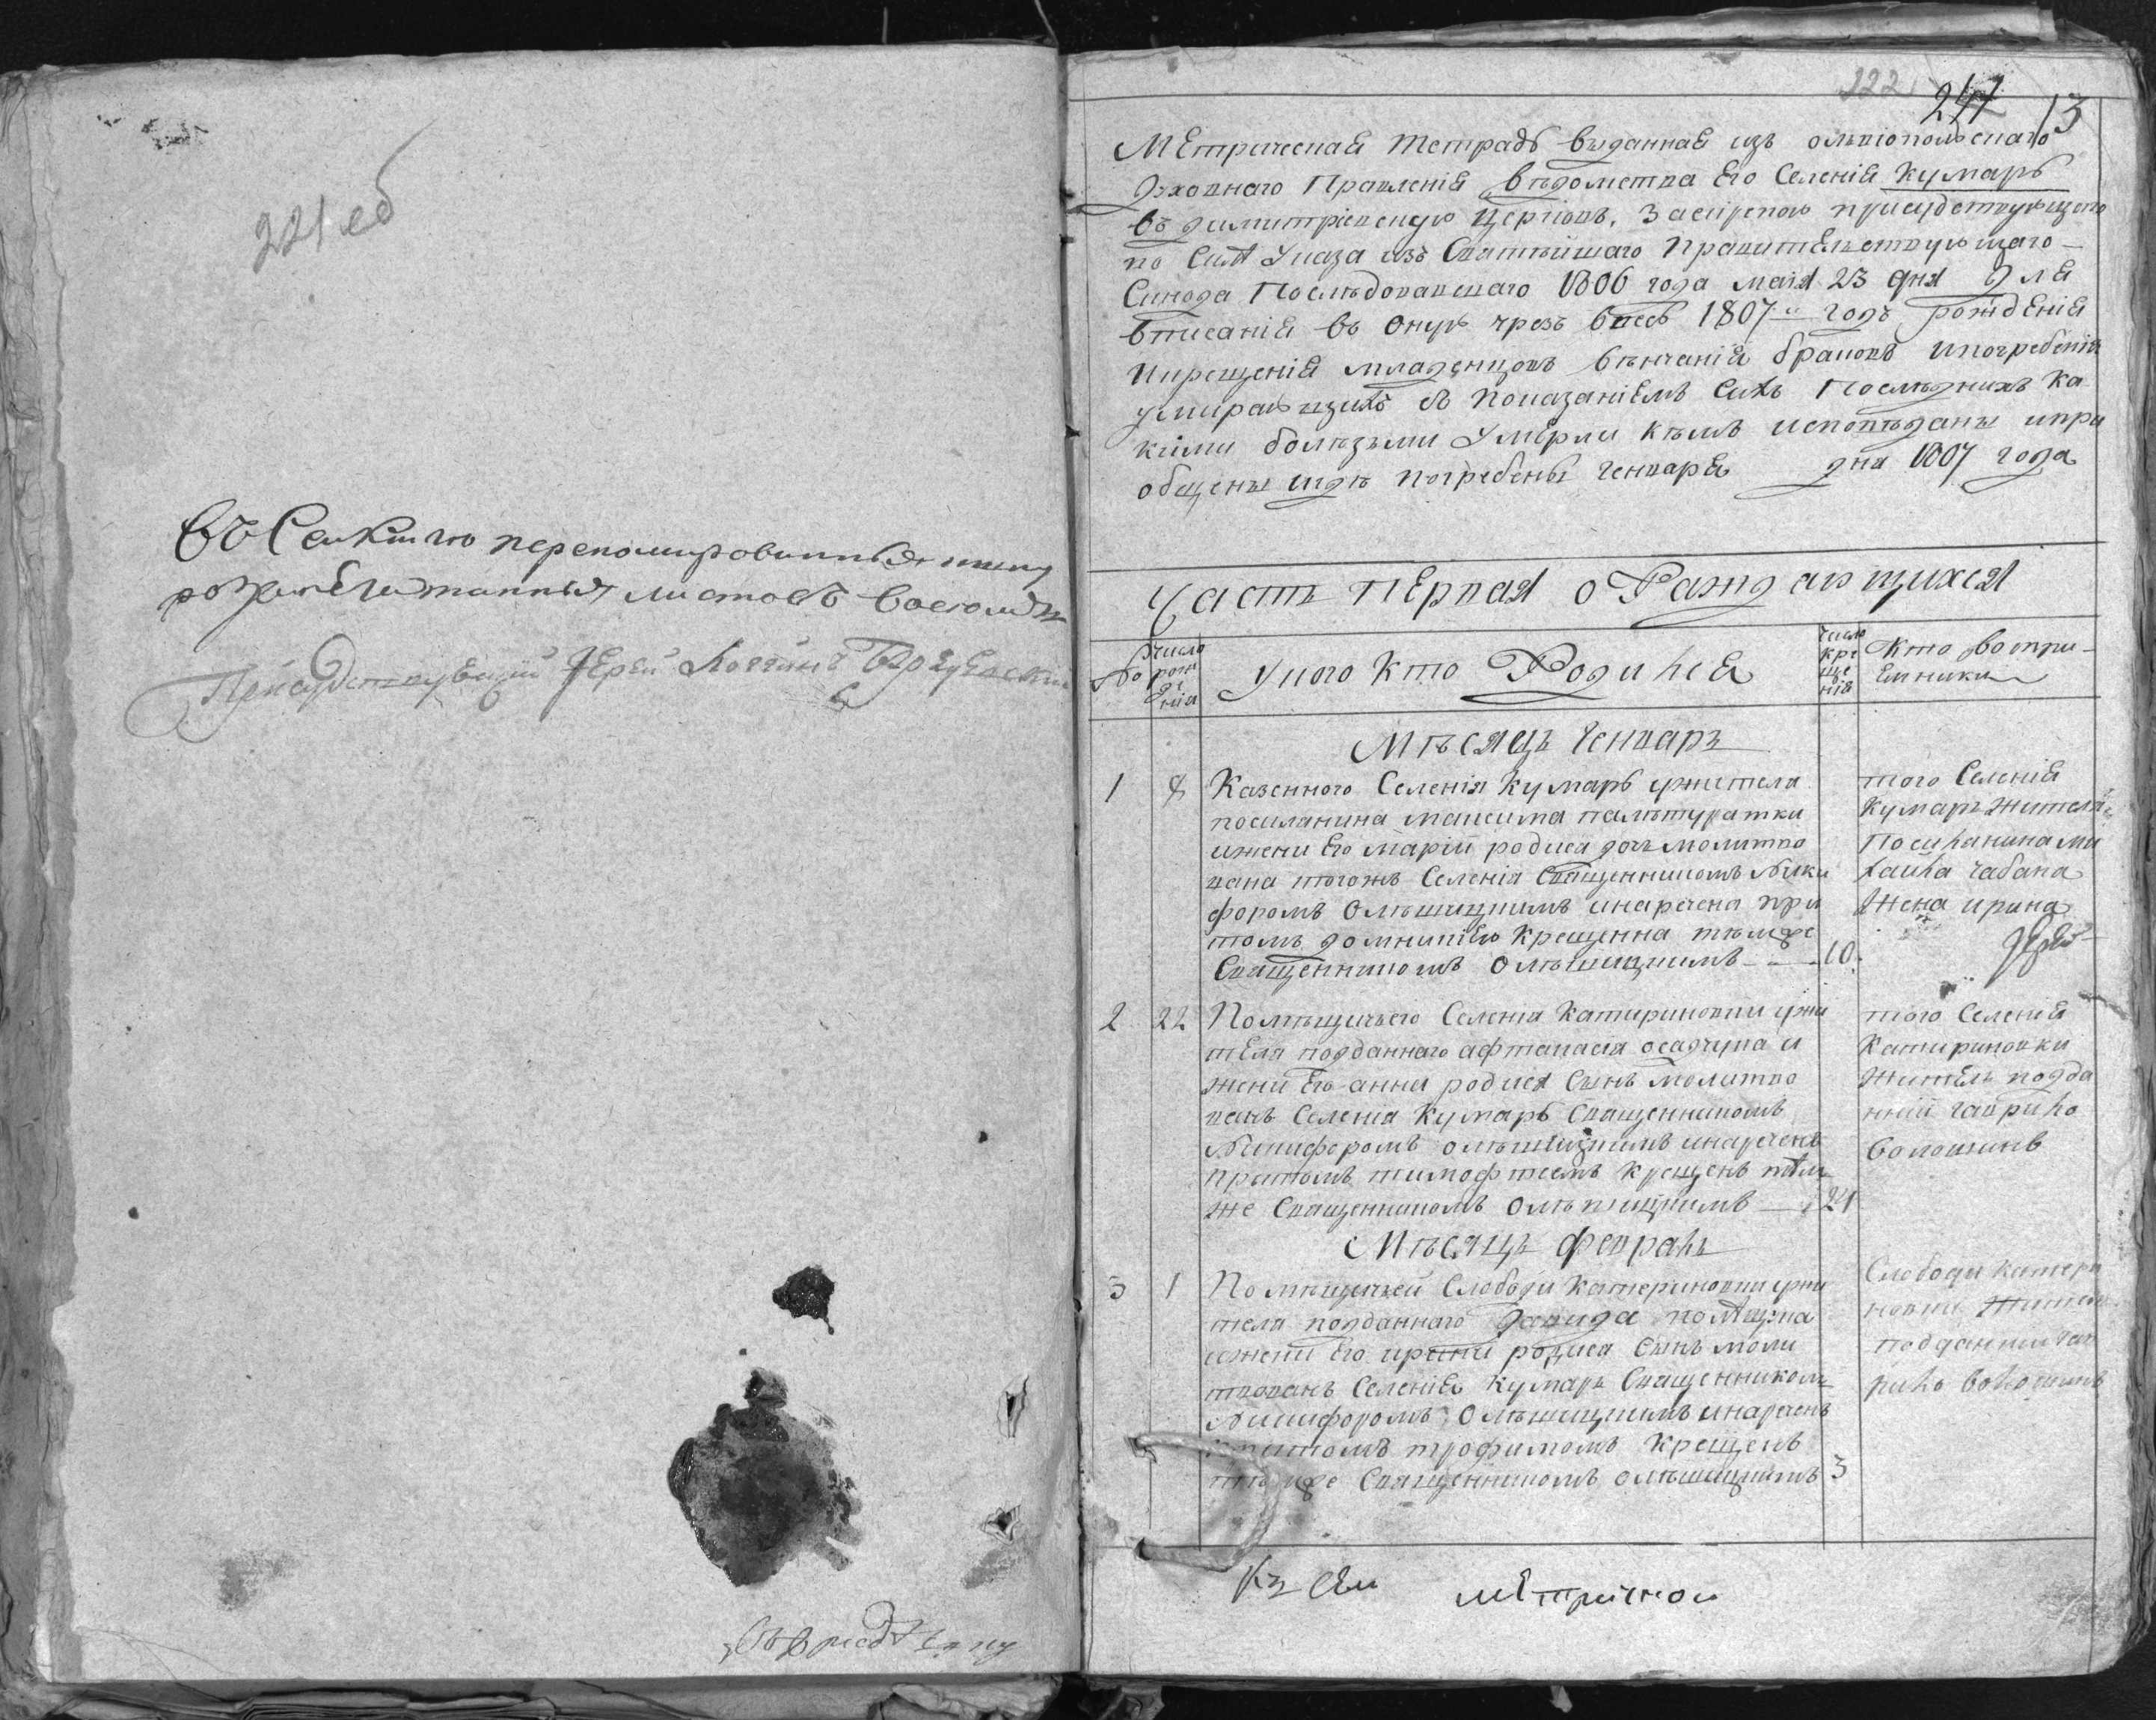 221 об
Въ сей книге перенумерованныя и шну
розапечатанныя листовъ восемь
Присудствующий Иерей Логгинъ
222
247 13
Метрическая тетрадь выданная изъ олвіопольскаго
духовнаго Правленія ведомства его Селенія Кумаръ
въ димитріевскую церковь, за скрепою присудствующаго
по силе Указа изъ Святейшаго Правительствующаго
Синода Последовавшаго 1806 года маія 23 дня для
вписанія въ оную чрезъ весь 1807 й годъ рожденія
икрещенія младенцовъ венчанія браковъ ипогребенія
умирающихъ съ показаніемъ сихъ последнихъ ка
кими болезьми умерли кемъ исповеданы ипри
общены игде погребены генваря дня 1807 года
Часть первая о Раждающихся
№ число рождения У кого кто Родился число крещенія Кто восприемники
Месяцъ Генварь
1 8 Казенного Селенія Кумаръ ужителя
поселянина максима
ижени Его маріи родися дочь молитво
вана тогожъ Селенія Священникомъ Ники
форомъ Олешицкимъ инаречена при
томъ домникією крещенна темже
Священникомъ Олешицкимъ 10
того Селенія
Кумаръ жителя
Поселянина ми
хаила чабана
жена ирина
2 22 Помещичьего Селенія Катириновки ужи
теля подданного афтанасія осадчука и
жени Его анни родися сынъ молитво
ванъ Селенія Кумаръ Священникомъ
Никифоромъ олешицкимъ инареченъ
притомъ тимофтеемъ крещенъ тем
же Священникомъ Олешицкимъ 24
того Селенія
Катириновки
житель подда
нній гаврило
волошинъ
Месяцъ февраль
3 1 Помещичьей Слободи Катериновки ужи
теля подданного Давида
ижени Его ирини родися сынъ моли
твованъ Селенія Кумаръ Священникомъ
Никифоромъ Олешицкимъ инареченъ
притомъ трофимомъ крещенъ
темже Священникомъ олешицкимъ 3
Слободи катери
новки житель
подданний гав
рило волошинъ
Къ сей метричной